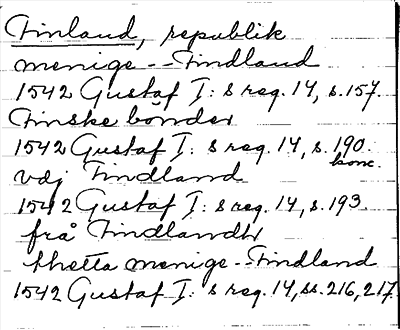 Finland, republik
menige -- Findland
1542 Gustaf I: s reg. 14, s. 157.
Finske bönder
1542 Gustaf I: s reg. 14, s. 190.
konc.
vdj Findland
1542 Gustaf I: s reg. 14, s. 193.
frå Findlandh
thetta menige - Findland
1542 Gustaf I: s reg. 14, ss. 216, 217.